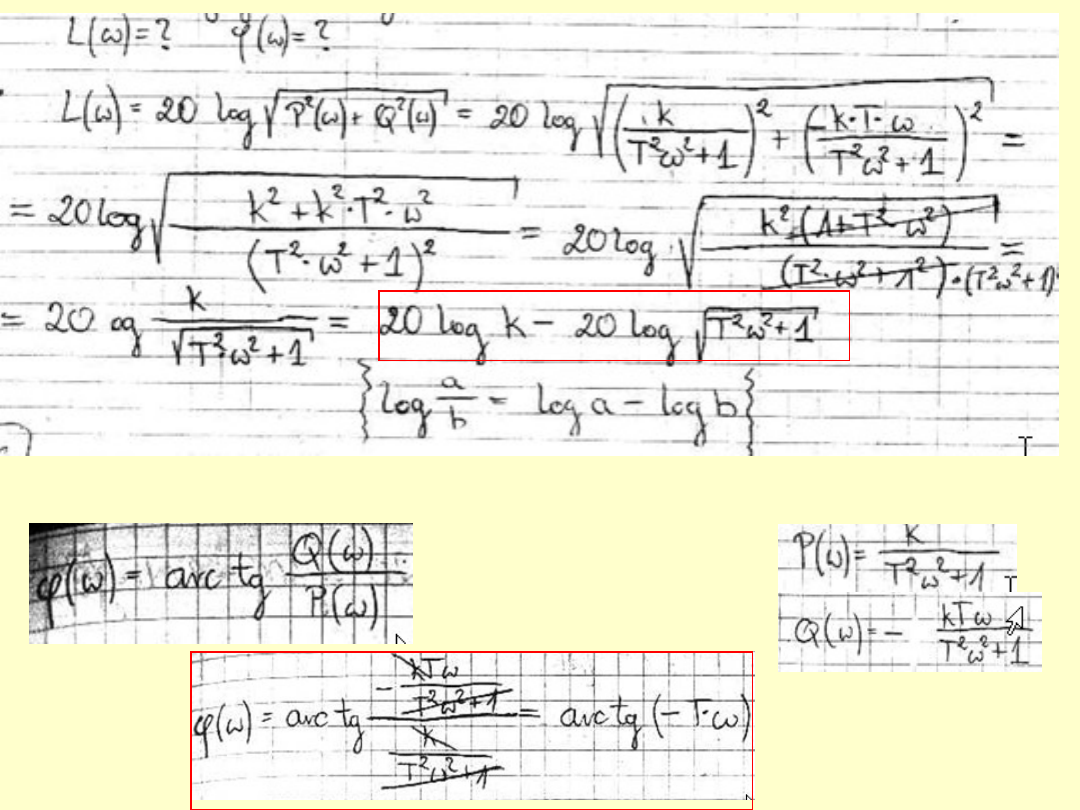 L(ω)=? φ(ω)=?
L(ω) = 20 log √(P²(ω) + Q²(ω)) = 20 log √((k / (T²ω²+1))² + (-k·T·ω / (T²ω²+1))²) =
= 20 log √((k² + k²·T²·ω²) / (T²·ω²+1)²) = 20 log √(k²·(1+T²·ω²) / ((T²·ω²+1²)·(T²ω²+1))) =
= 20 og k / √(T²ω²+1) = 20 log k - 20 log √(T²ω²+1)
{log a/b = log a - log b}
φ(ω) = arc tg Q(ω) / P(ω)
P(ω) = k / (T²ω²+1)
Q(ω) = - kTω / (T²ω²+1)
φ(ω) = arc tg (- kTω / (T²ω²+1)) / (k / (T²ω²+1)) = arc tg (-T·ω)